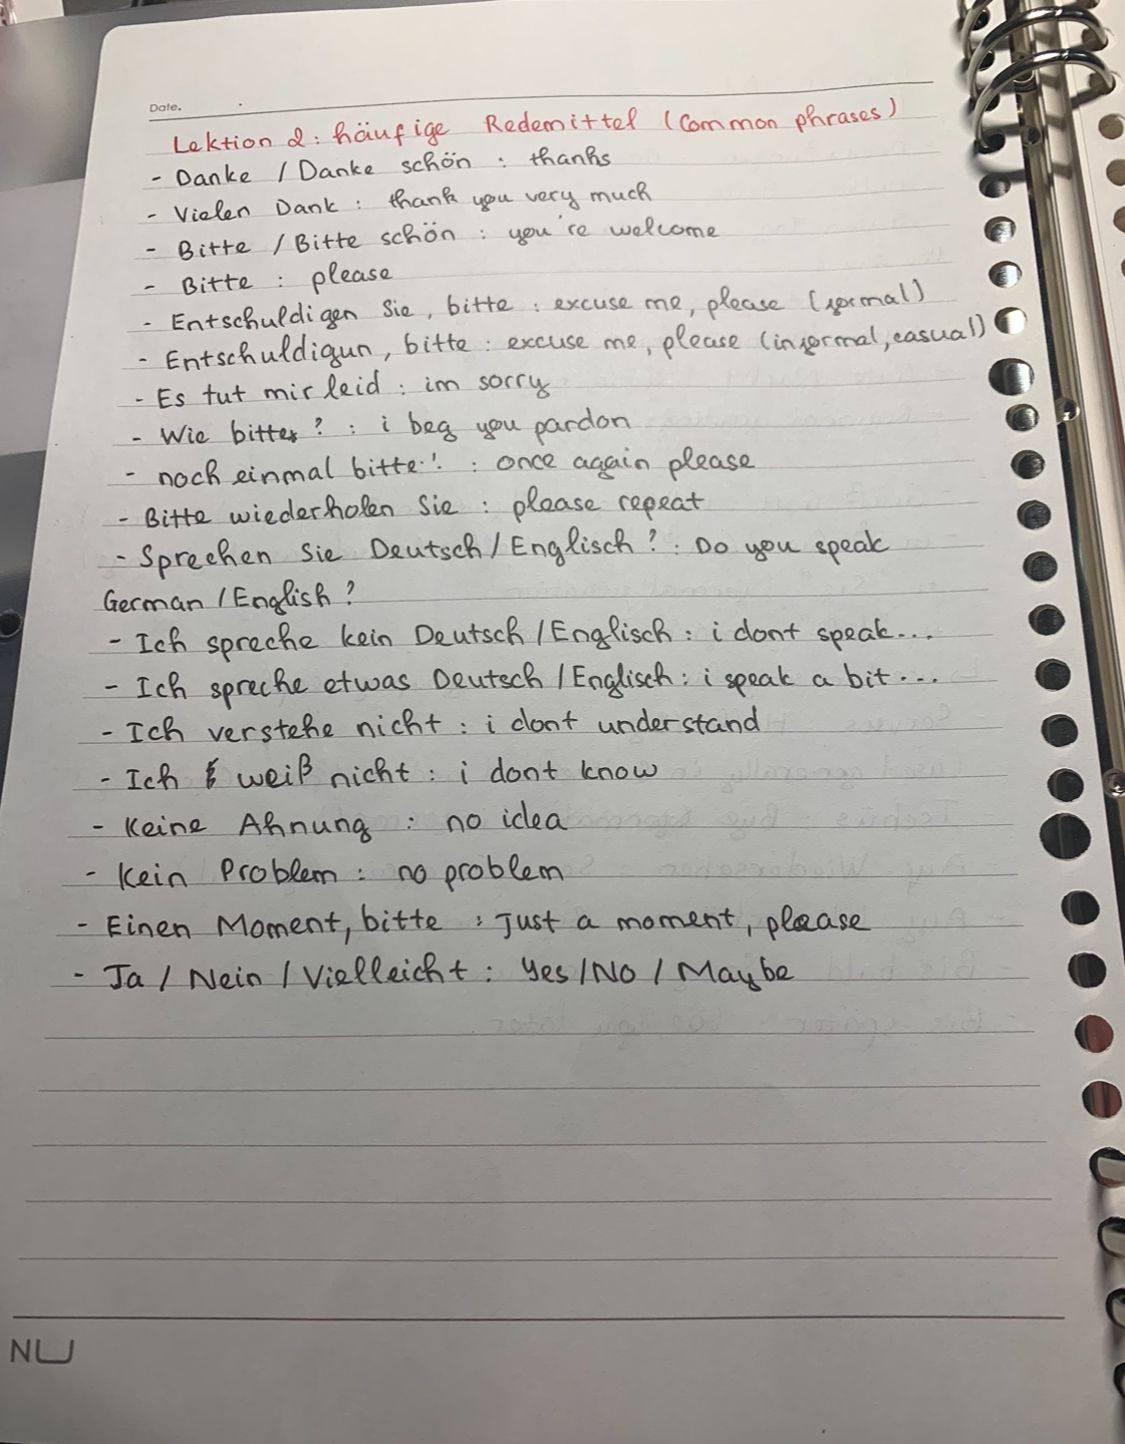 Date.
Lektion 2: häufige Redemittel (Common phrases)
- Danke / Danke schön : thanks
- Vielen Dank : thank you very much
- Bitte / Bitte schön : you're welcome
- Bitte : please
- Entschuldigen Sie, bitte : excuse me, please (formal)
- Entschuldigun, bitte : excuse me, please (informal, casual)
- Es tut mir leid : im sorry
- Wie bitte ? : i beg you pardon
- noch einmal bitte! : once again please
- Bitte wiederholen Sie : please repeat
- Sprechen Sie Deutsch / Englisch ? : Do you speak
German / English ?
- Ich spreche kein Deutsch / Englisch : i dont speak...
- Ich spreche etwas Deutsch / Englisch : i speak a bit...
- Ich verstehe nicht : i dont understand
- Ich weiß nicht : i dont know
- Keine Ahnung : no idea
- Kein Problem : no problem
- Einen Moment, bitte : Just a moment, please
- Ja / Nein / Vielleicht : Yes / No / Maybe
NU